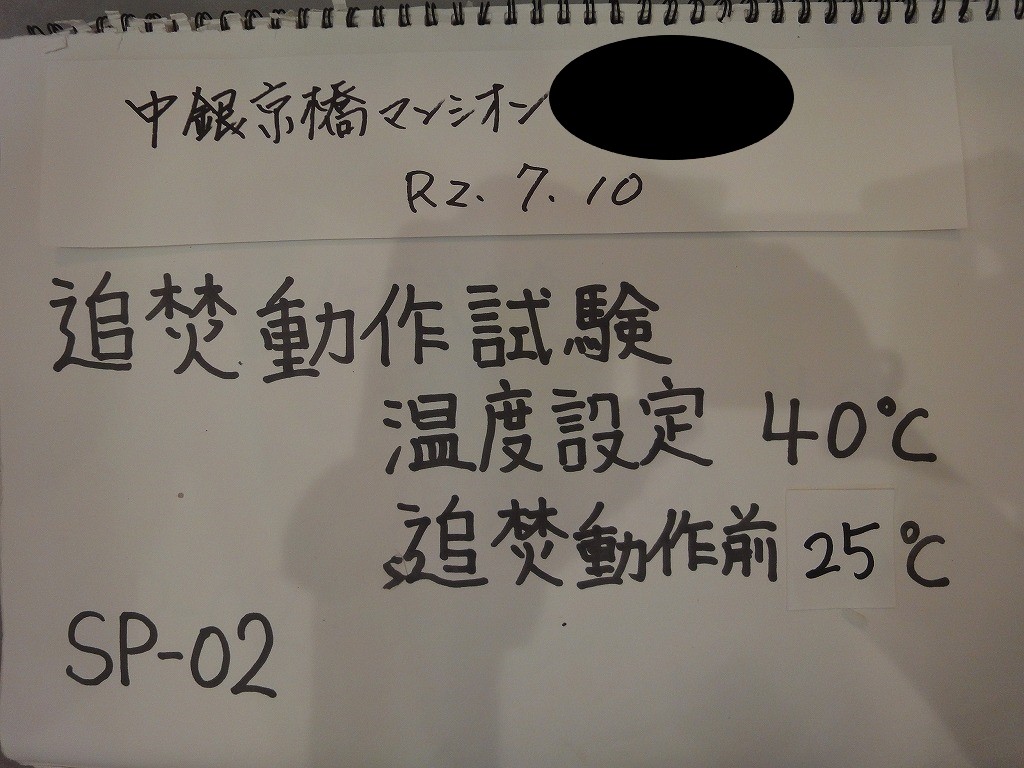 中銀京橋マンシオン
R2.7.10
追焚動作試験
温度設定 40℃
追焚動作前 25℃
SP-02